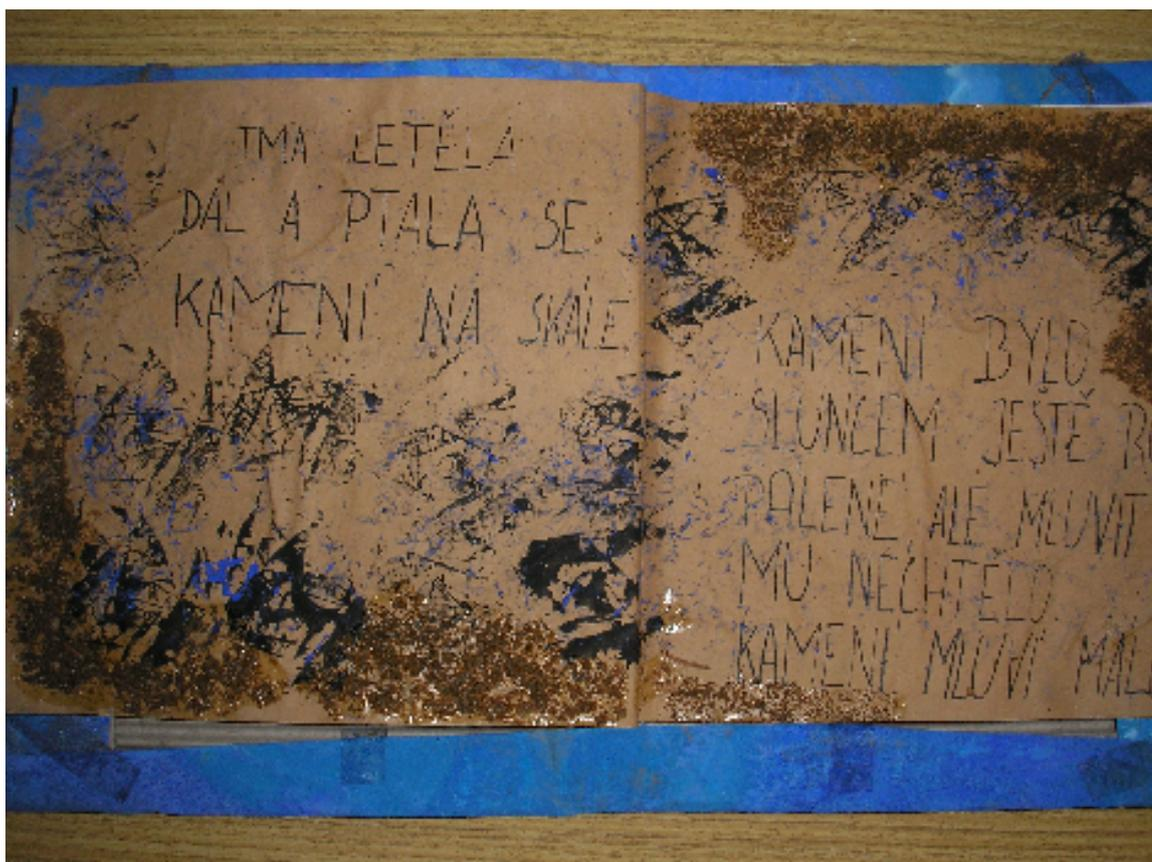 TMA LETĚLA
DÁL A PTALA SE
KAMENÍ NA SKÁLE.
KAMENÍ BYLO
SLUNCEM JEŠTĚ
PÁLENÉ ALE MLUVIT
MU NECHTĚLO.
KAMENÍ MLUVÍ